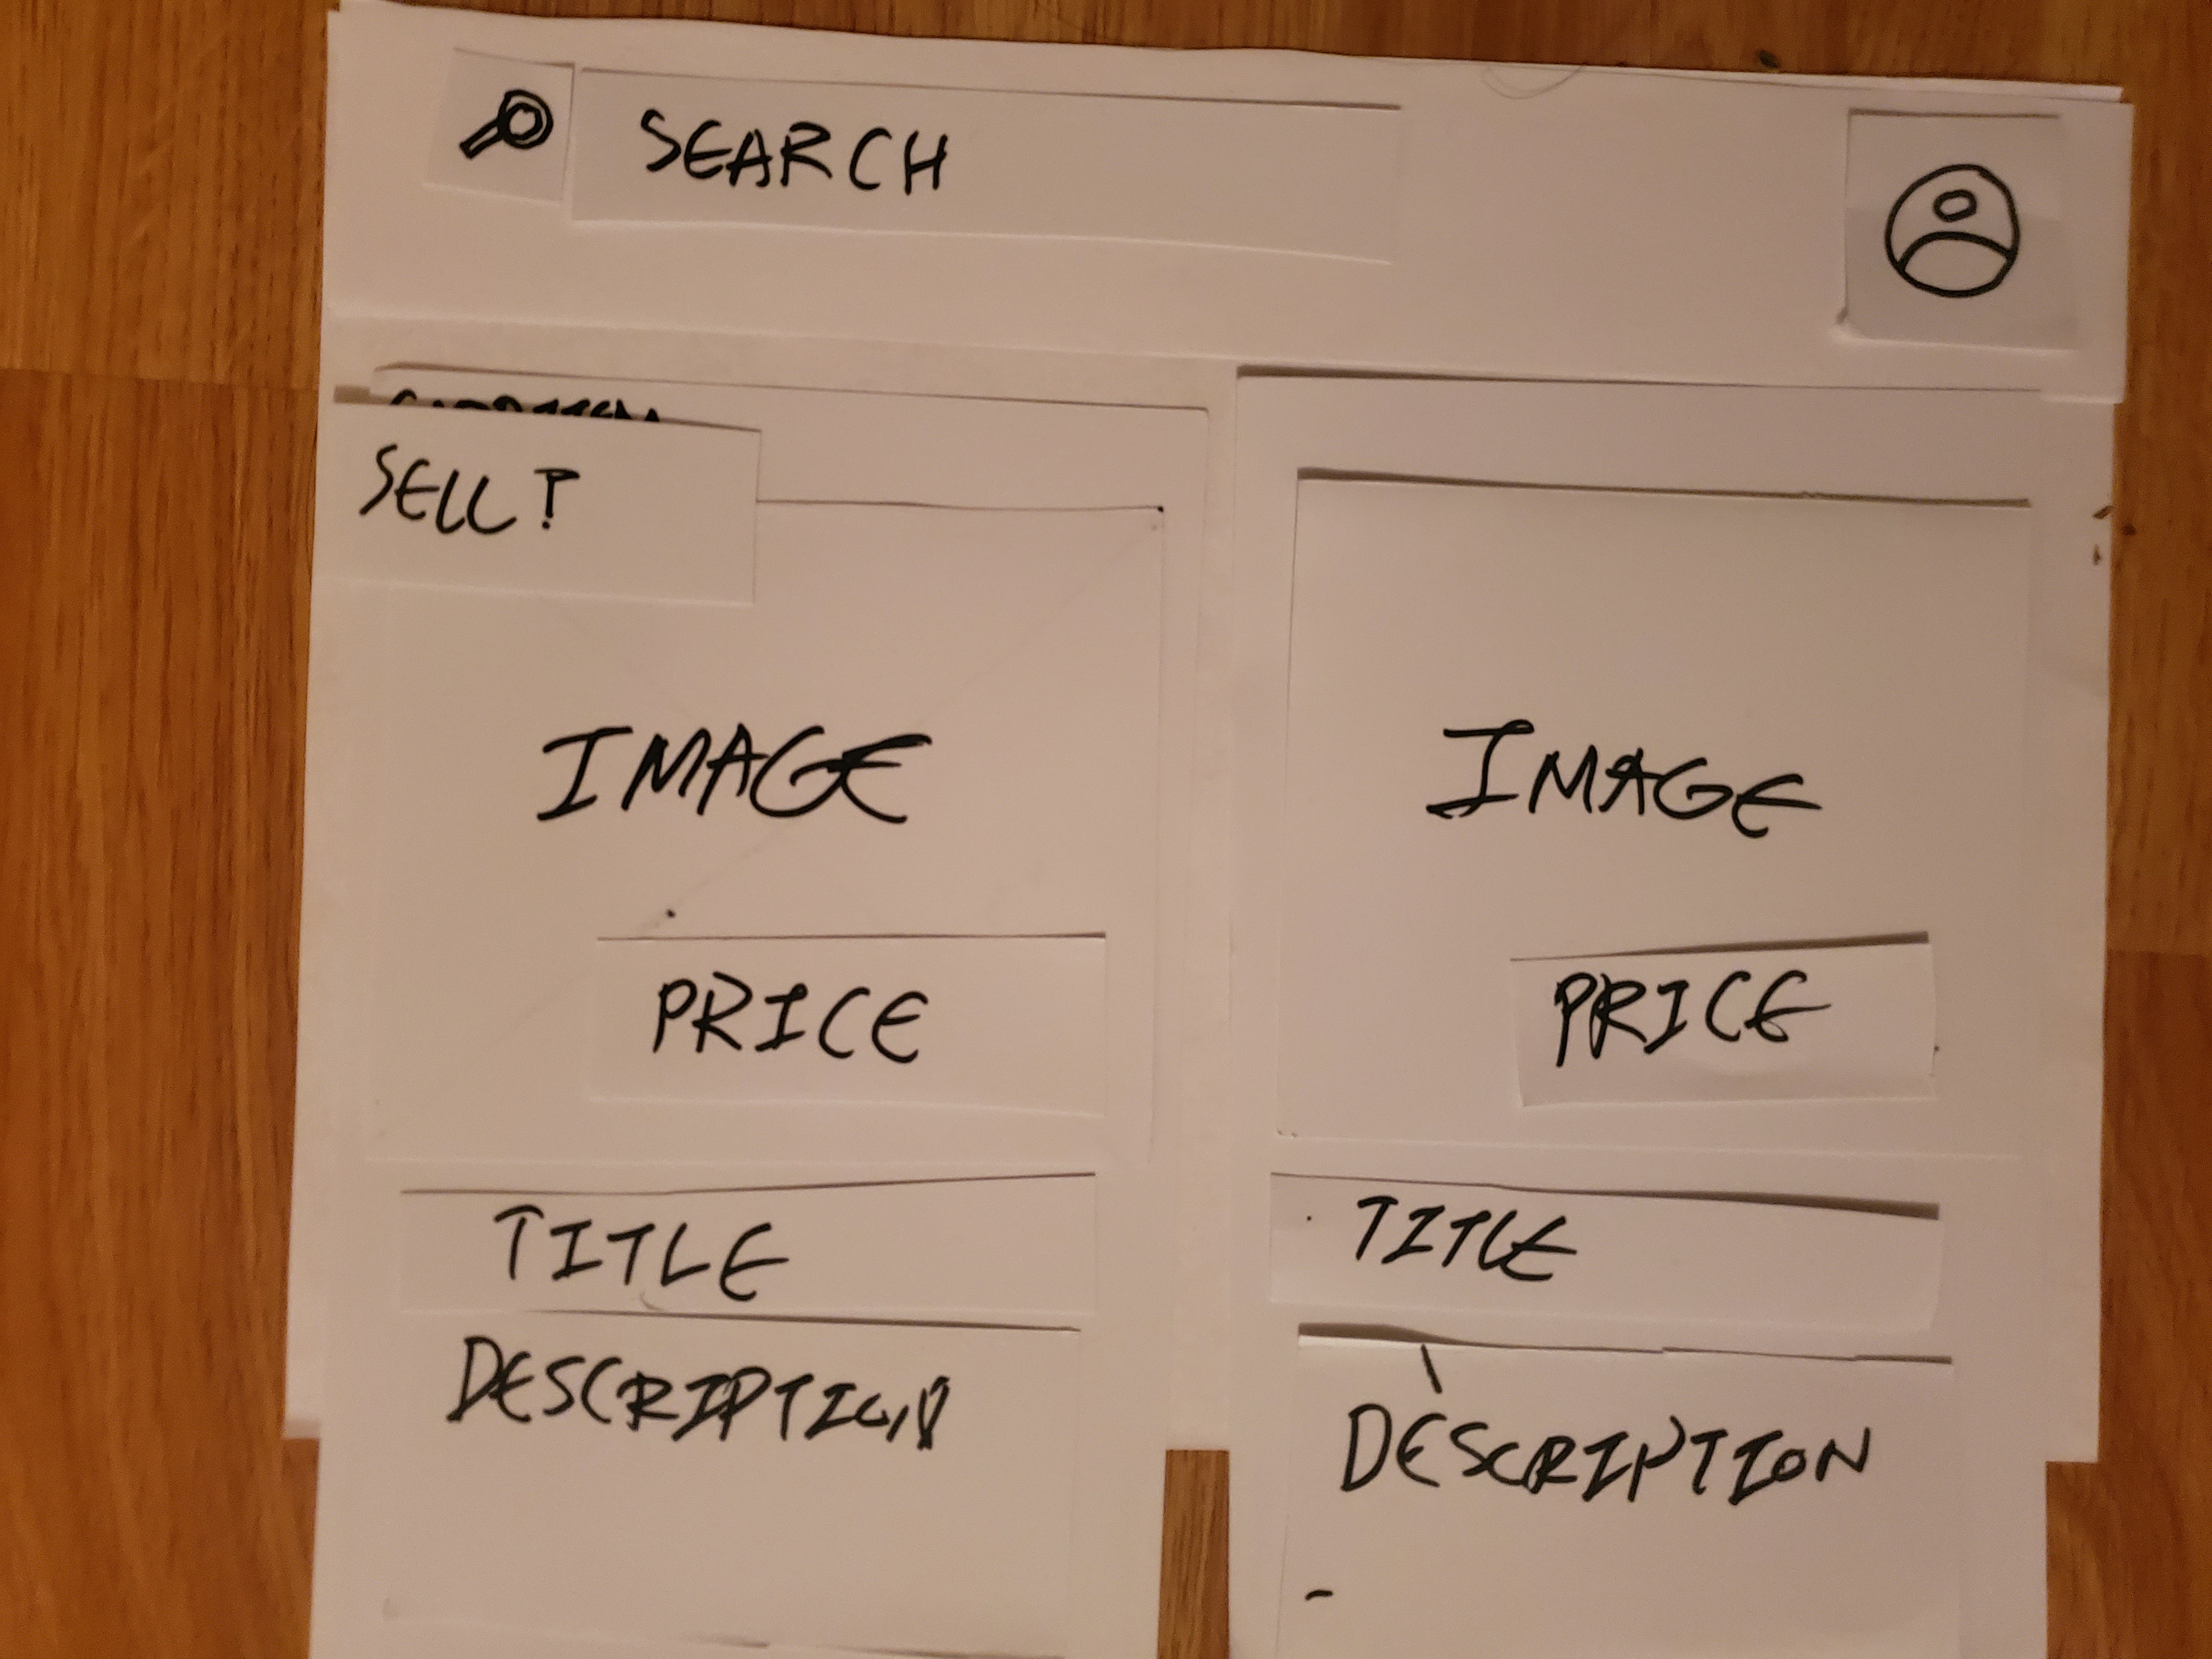 SEARCH
SELL?
IMAGE
PRICE
TITLE
DESCRIPTION
IMAGE
PRICE
TITLE
DESCRIPTION